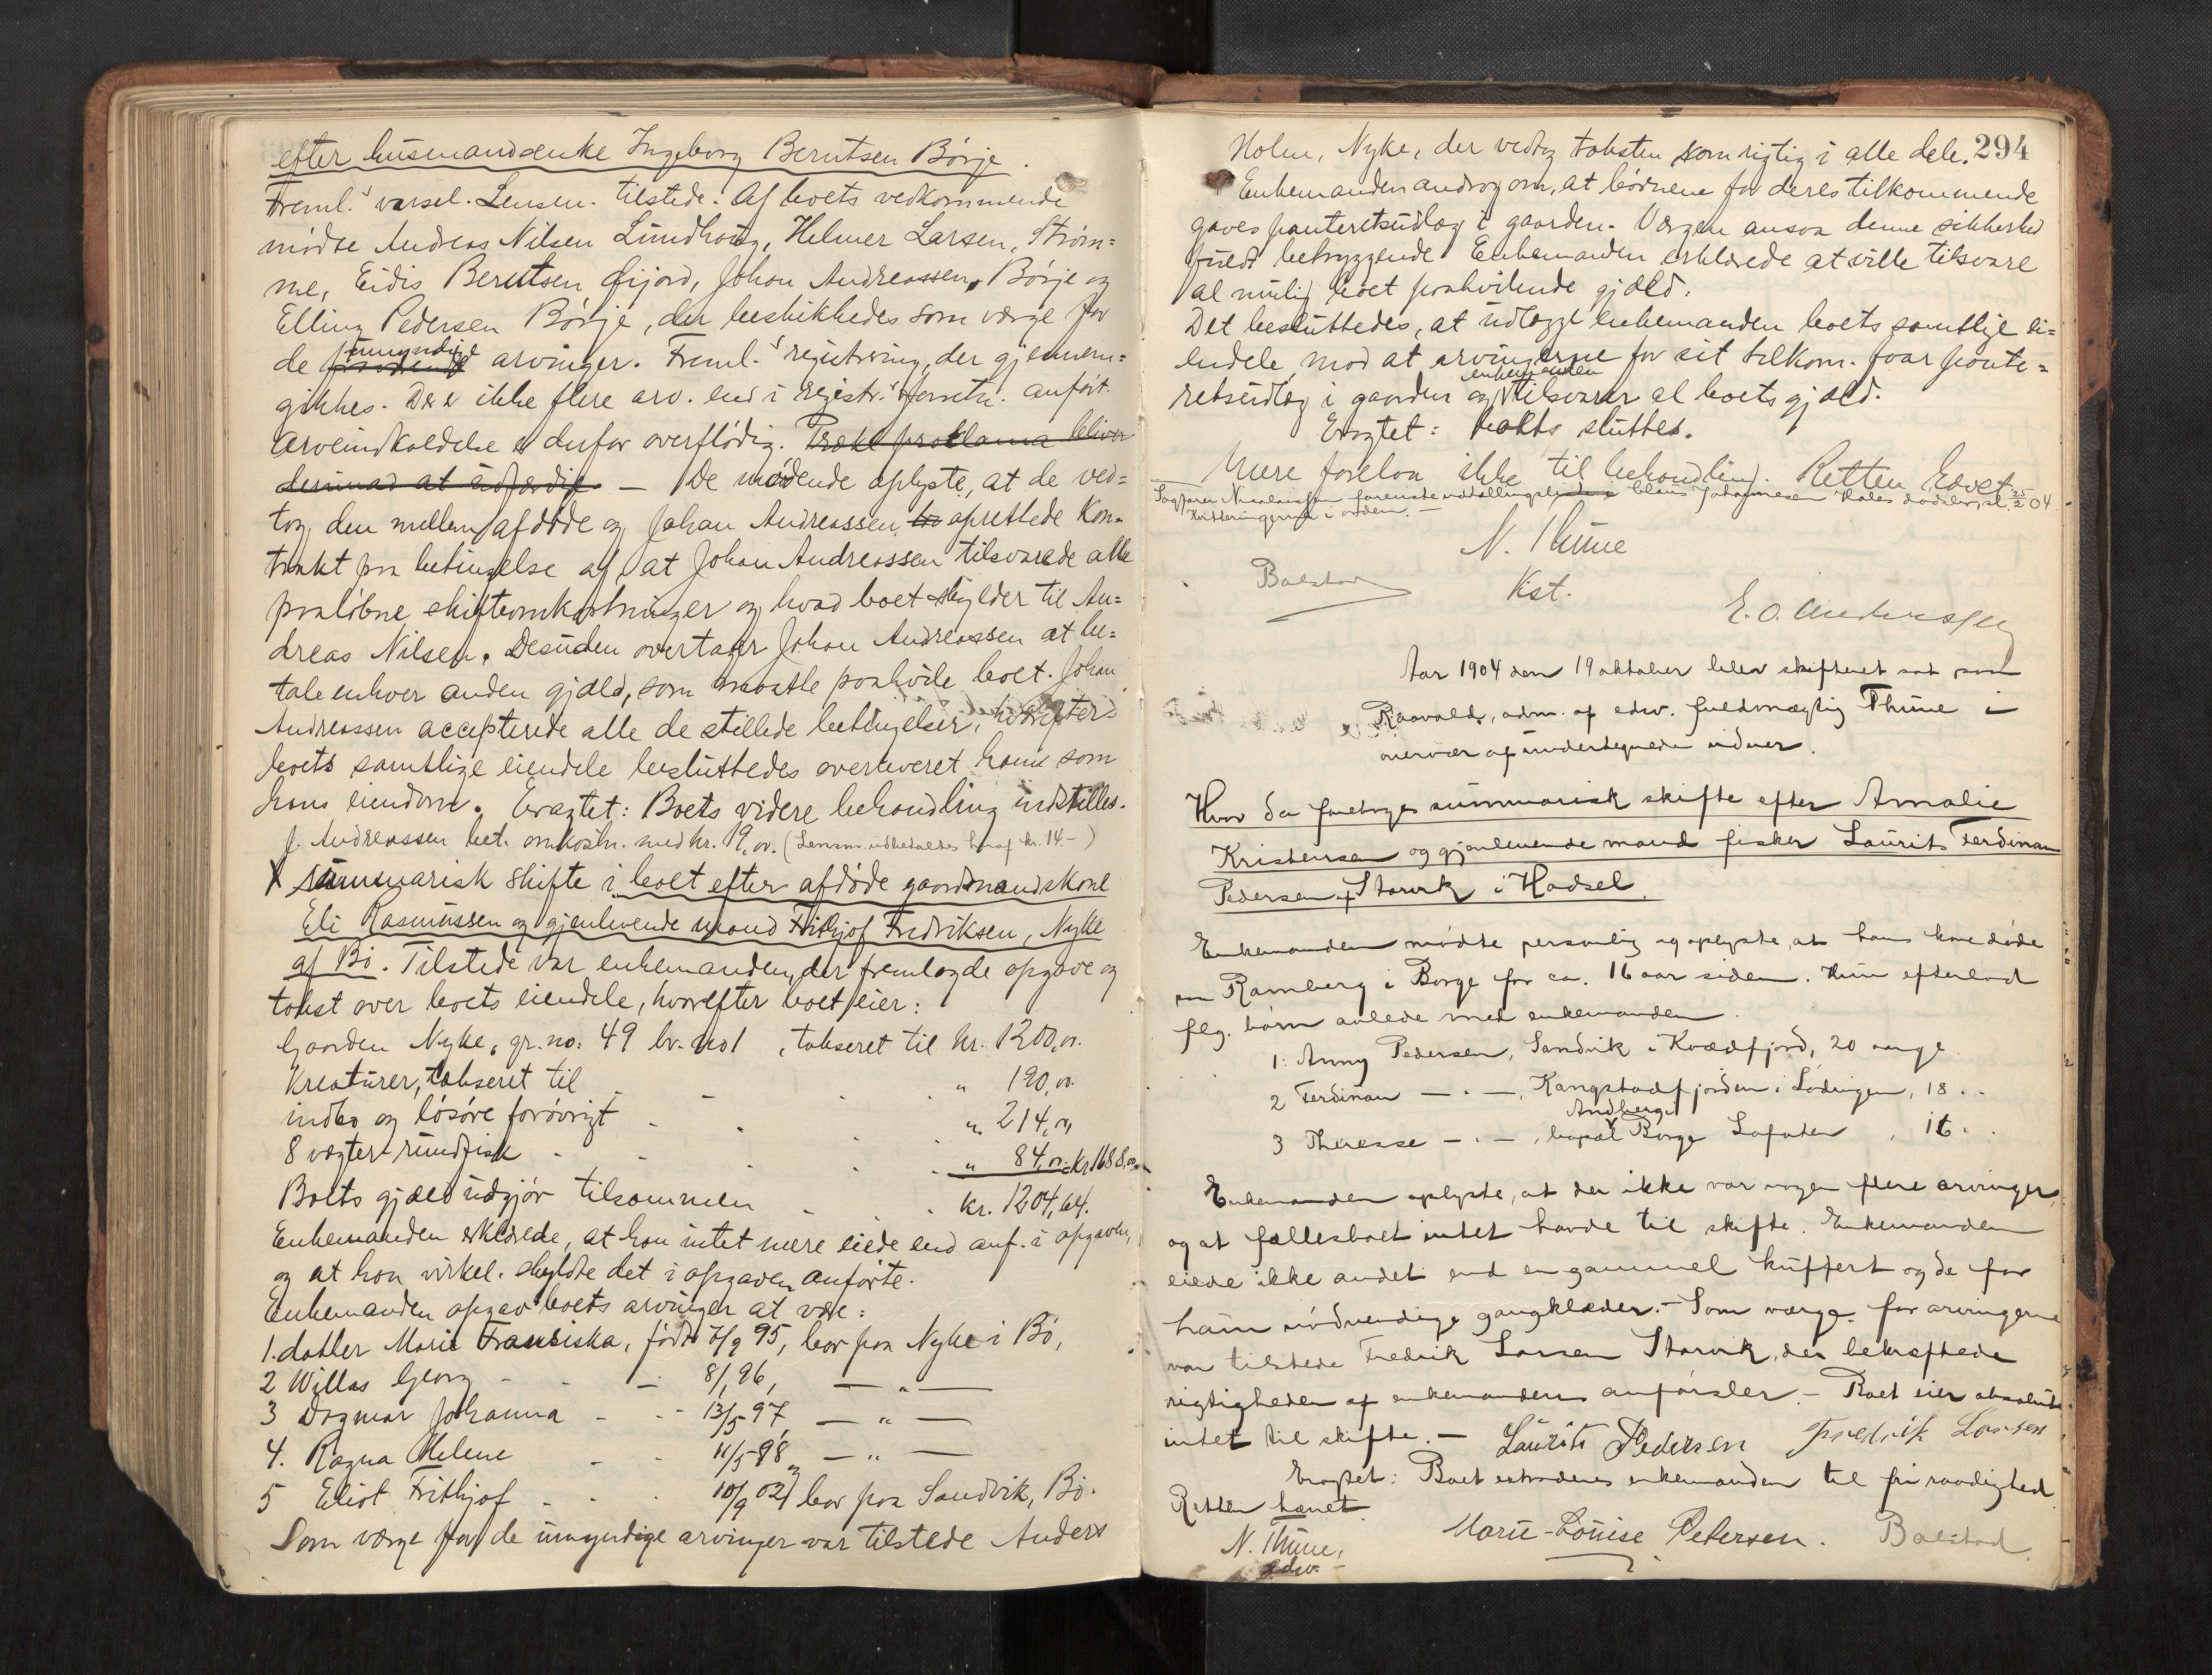 efter husmandsenke Ingeborg Berntsen Börje.
Freml.s varsel. Lensm. tilstede. Af boets vedkommende
mödte Andreas Nilsen Lundhaug, Helmer Larsen, Ström=
me, Eidis Berntsen Gijord, Johan Andreassen, Börje og
Elling Pedersen Börje, der beskikkedes som værge for
de umyndige arvinger. Freml.s registrering, der gjennem=
gikkes. Der er ikke flere arv. end i registr.s forretn. anfört.
Arveindkaldelse er derfor overflödig. Prækl. proklama bliver
derimod at udfærdig. — De mödende oplyste, at de ved=
tog den mellem afdöde og Johan Andreassen oprettede Kon=
trakt paa betingelse af, at Johan Andreassen tilsvarede alle
paalöbne skifteomkostninger og hvad boet skylder til An=
dreas Nilsen. Desuden overtager Johan Andreassen at be=
tale enhver anden gjæld, som maatte paahvile boet. Johan
Andreassen accepterede alle de stillede betingelser, hvorefter
boets samtlige eiendele besluttedes overleveret ham som
hans eiendom. Eragtet: Boets videre behandling indstilles.
J. Andreassen bet. omkostn. med kr. 19,00. (Lensm. udbetaltes heraf kr. 14.-)
X Summarisk skifte i boet efter afdöde gaardmandskone
Eli Rasmussen og gjenlevende mand Frithjof Fredriksen, Nyke
af Bö. Tilstede var enkemanden, der fremlagde opgave og
takst over boets eiendele, hvorefter boet eier:
Gaarden Nyke, gr. no. 49 br. no 1, takseret til kr. 1200,00.
Kreaturer, takseret til - - - " 190,00.
indbo og lösöre forövrigt - - - " 214,00
8 vægter rundfisk - - - " 84,00 = kr. 1688,00
Boets gjæld udgjör tilsammen - - kr. 1204,64.
Enkemanden erklærede, at han intet mere eiede end anf. i opgaven,
og at han virkel. skyldte det i opgaven anförte.
Enkemanden opgav boets arvinger at være:
1. datter Marie Fransiska, födt 7/9 95, bor paa Nyke i Bö,
2 Willas Georg - - - 8/1 96, — " —
3 Dagmar Johanna - - - 13/5 97, — " —
4. Ragna Helene - - 11/5 98 og — " —
5 Eliot Frithjof - - - 10/9 02, bor paa Sandvik, Bö.
Som værge for de umyndige arvinger var tilstede Anders
294
Holm, Nyke, der vedtog taksten som rigtig i alle dele.
Enkemanden androg om, at börnene for deres tilkommende
gaves panteretsudlæg i gaarden. Værgen ansaa denne sikkerhed
fuldt betryggende. Enkemanden erklærede at ville tilsvare
al mulig boet paahvilende gjæld.
Det besluttedes, at udlægge enkemanden boets samtlige ei=
endele, mod at arvingerne for sit tilkom. faar pante=
retsudlæg i gaarden og enkemanden tilsvarer al boets gjæld.
Eragtet: boets sluttet.
Mere forelaa ikke til behandling. Retten hævet.
Sagförer Nicolaissen foreviste udtællingsliste i Claus Johannesen Hales dødsbo, sl. 25/2 04.
Kvitteringerne i orden. —
N. Thune
Kst.
Balstad
E. O. Anderssen
Aar 1904 den 19 oktober blev skifteret sat paa
Kaavald, adm. af edsv. fuldmægtig Thune i
overvær af undertegnede vidner.
Hvor da foretoges summarisk skifte efter Amalie
Kristensen og gjenlevende mand fisker Laurits Ferdinan
Pedersen af Storvik i Hadsel.
Enkemanden mödte personlig og oplyste, at hans kone döde
paa Ramberg i Borge for ca. 16 aar siden. Hun efterlod
flg. börn avlede med enkemanden.
1. Anny Pedersen, Sandvik i Kvædfjord, 20 aarge
2 Ferdinan — " —, Kangstadfjorden i Lödingen, 18 "
3 Theresse — " —, bopæl Andberg Borge Lofoten, 16 "
Enkemanden oplyste, at der ikke var nogen flere arvinger,
og at fællesboet intet havde til skifte. Enkemanden
eiede ikke andet end en gammel kuffert og de for
ham nödvendige gangklæder. — Som værge for arvingerne
var tilstede Fredrik Larsen Storvik, der bekræftede
rigtigheden af enkemandens anförsler. — Boet eier absolut
intet til skifte. — Laurits Pedersen Fredrik Larsen
Eragtet: Boet extraderes enkemanden til fri raadighed.
Retten hævet.
N. Thune,
edsv.
Marie-Louise Petersen. Balstad.